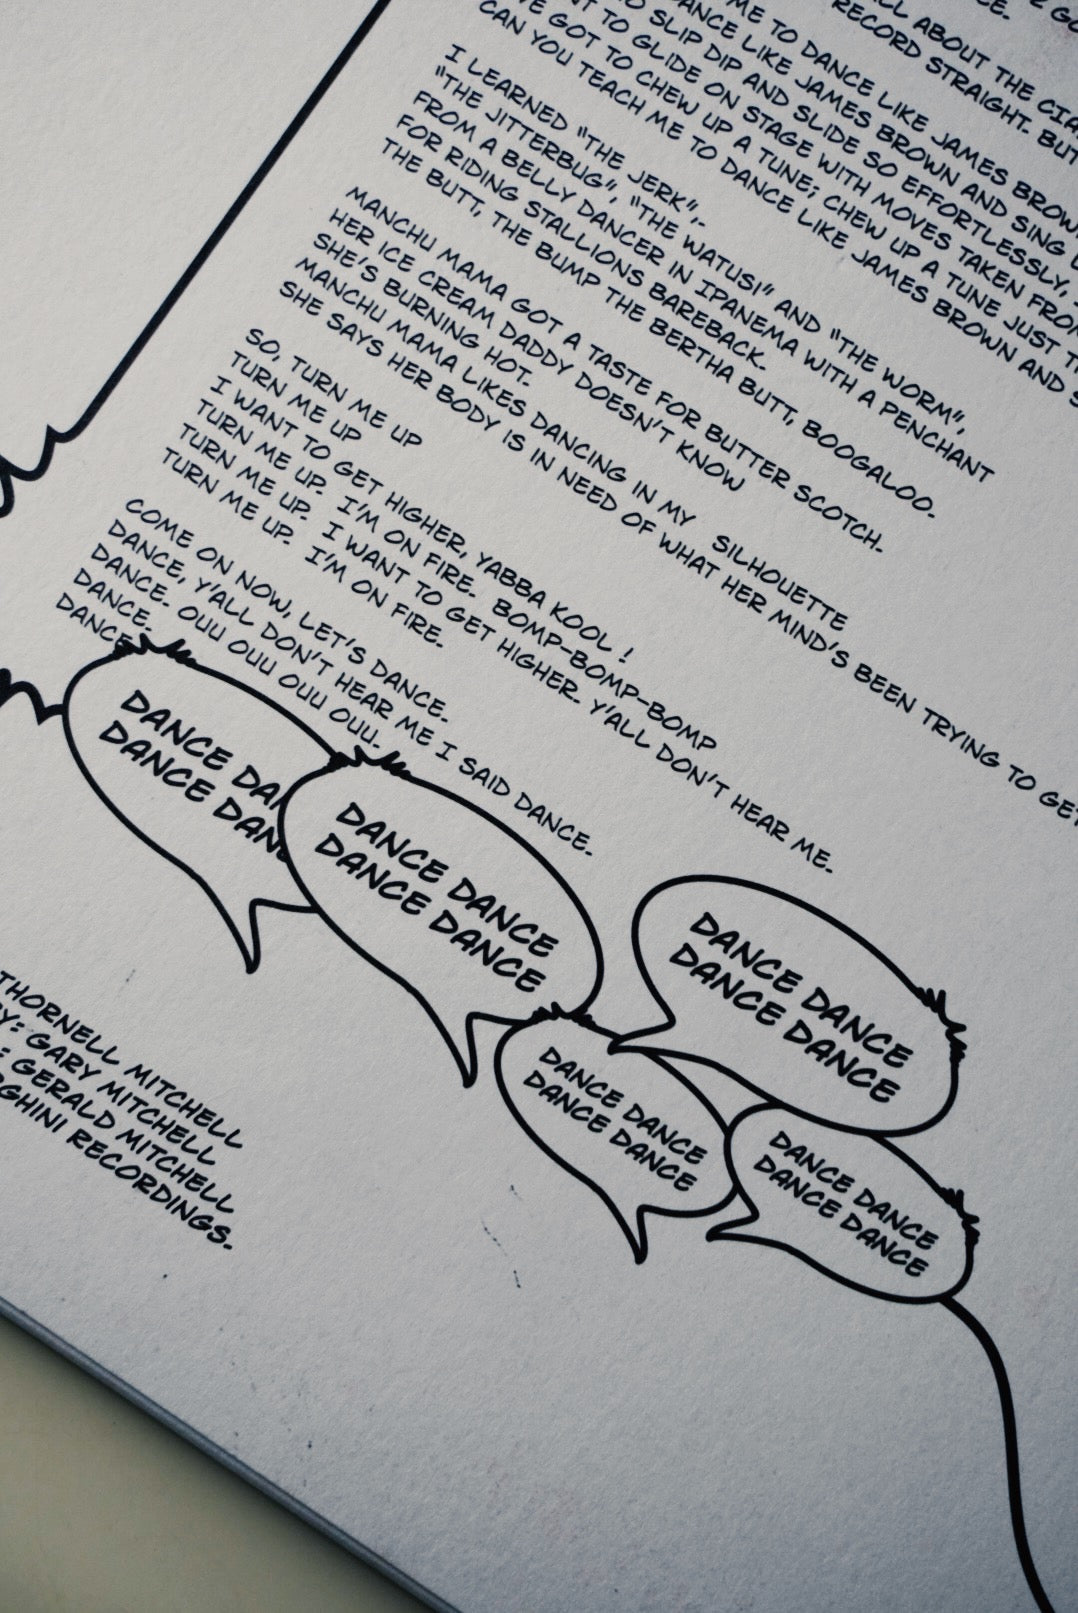 ALL ABOUT THE CIA
RECORD STRAIGHT. BUT
ME TO DANCE LIKE JAMES BROWN
DANCE LIKE JAMES BROWN AND SING
TO SLIP DIP AND SLIDE SO EFFORTLESSLY,
TO GLIDE ON STAGE WITH MOVES TAKEN FROM
GOT TO CHEW UP A TUNE; CHEW UP A TUNE JUST
CAN YOU TEACH ME TO DANCE LIKE JAMES BROWN AND
I LEARNED "THE JERK",.
"THE JITTERBUG", "THE WATUSI" AND "THE WORM",
FROM A BELLY DANCER IN IPANEMA WITH A PENCHANT
FOR RIDING STALLIONS BAREBACK.
THE BUTT, THE BUMP THE BERTHA BUTT, BOOGALOO.
MANCHU MAMA GOT A TASTE FOR BUTTER SCOTCH.
HER ICE CREAM DADDY DOESN'T KNOW
SHE'S BURNING HOT.
MANCHU MAMA LIKES DANCING IN MY SILHOUETTE
SHE SAYS HER BODY IS IN NEED OF WHAT HER MIND'S BEEN TRYING TO GET
SO, TURN ME UP
TURN ME UP
I WANT TO GET HIGHER, YABBA KOOL !
TURN ME UP. I'M ON FIRE. BOMP-BOMP-BOMP
TURN ME UP. I WANT TO GET HIGHER. Y'ALL DON'T HEAR ME.
TURN ME UP. I'M ON FIRE.
COME ON NOW, LET'S DANCE.
DANCE, Y'ALL DON'T HEAR ME I SAID DANCE.
DANCE. OUU OUU OUU OUU.
DANCE.
DANCE
DANCE DAN
DANCE DAN
DANCE DANCE
DANCE DANCE
DANCE DANCE
DANCE DANCE
DANCE DANCE
DANCE DANCE
DANCE DANCE
DANCE DANCE
THORNELL MITCHELL
Y: GARY MITCHELL
: GERALD MITCHELL
GHINI RECORDINGS.